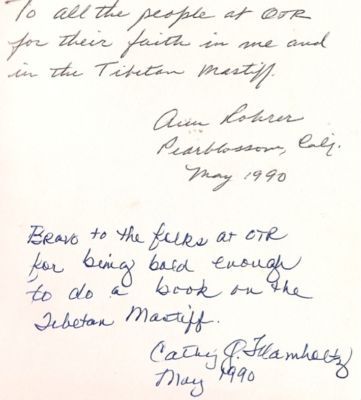 To all the people at OTR
for their faith in me and
in the Tibetan Mastiff.
Ann Rohrer
Pearblossom, Calif.
May 1990
Bravo to the folks at OTR
for being bold enough
to do a book on the
Tibetan Mastiff.
Cathy J. Flamholtz
May 1990